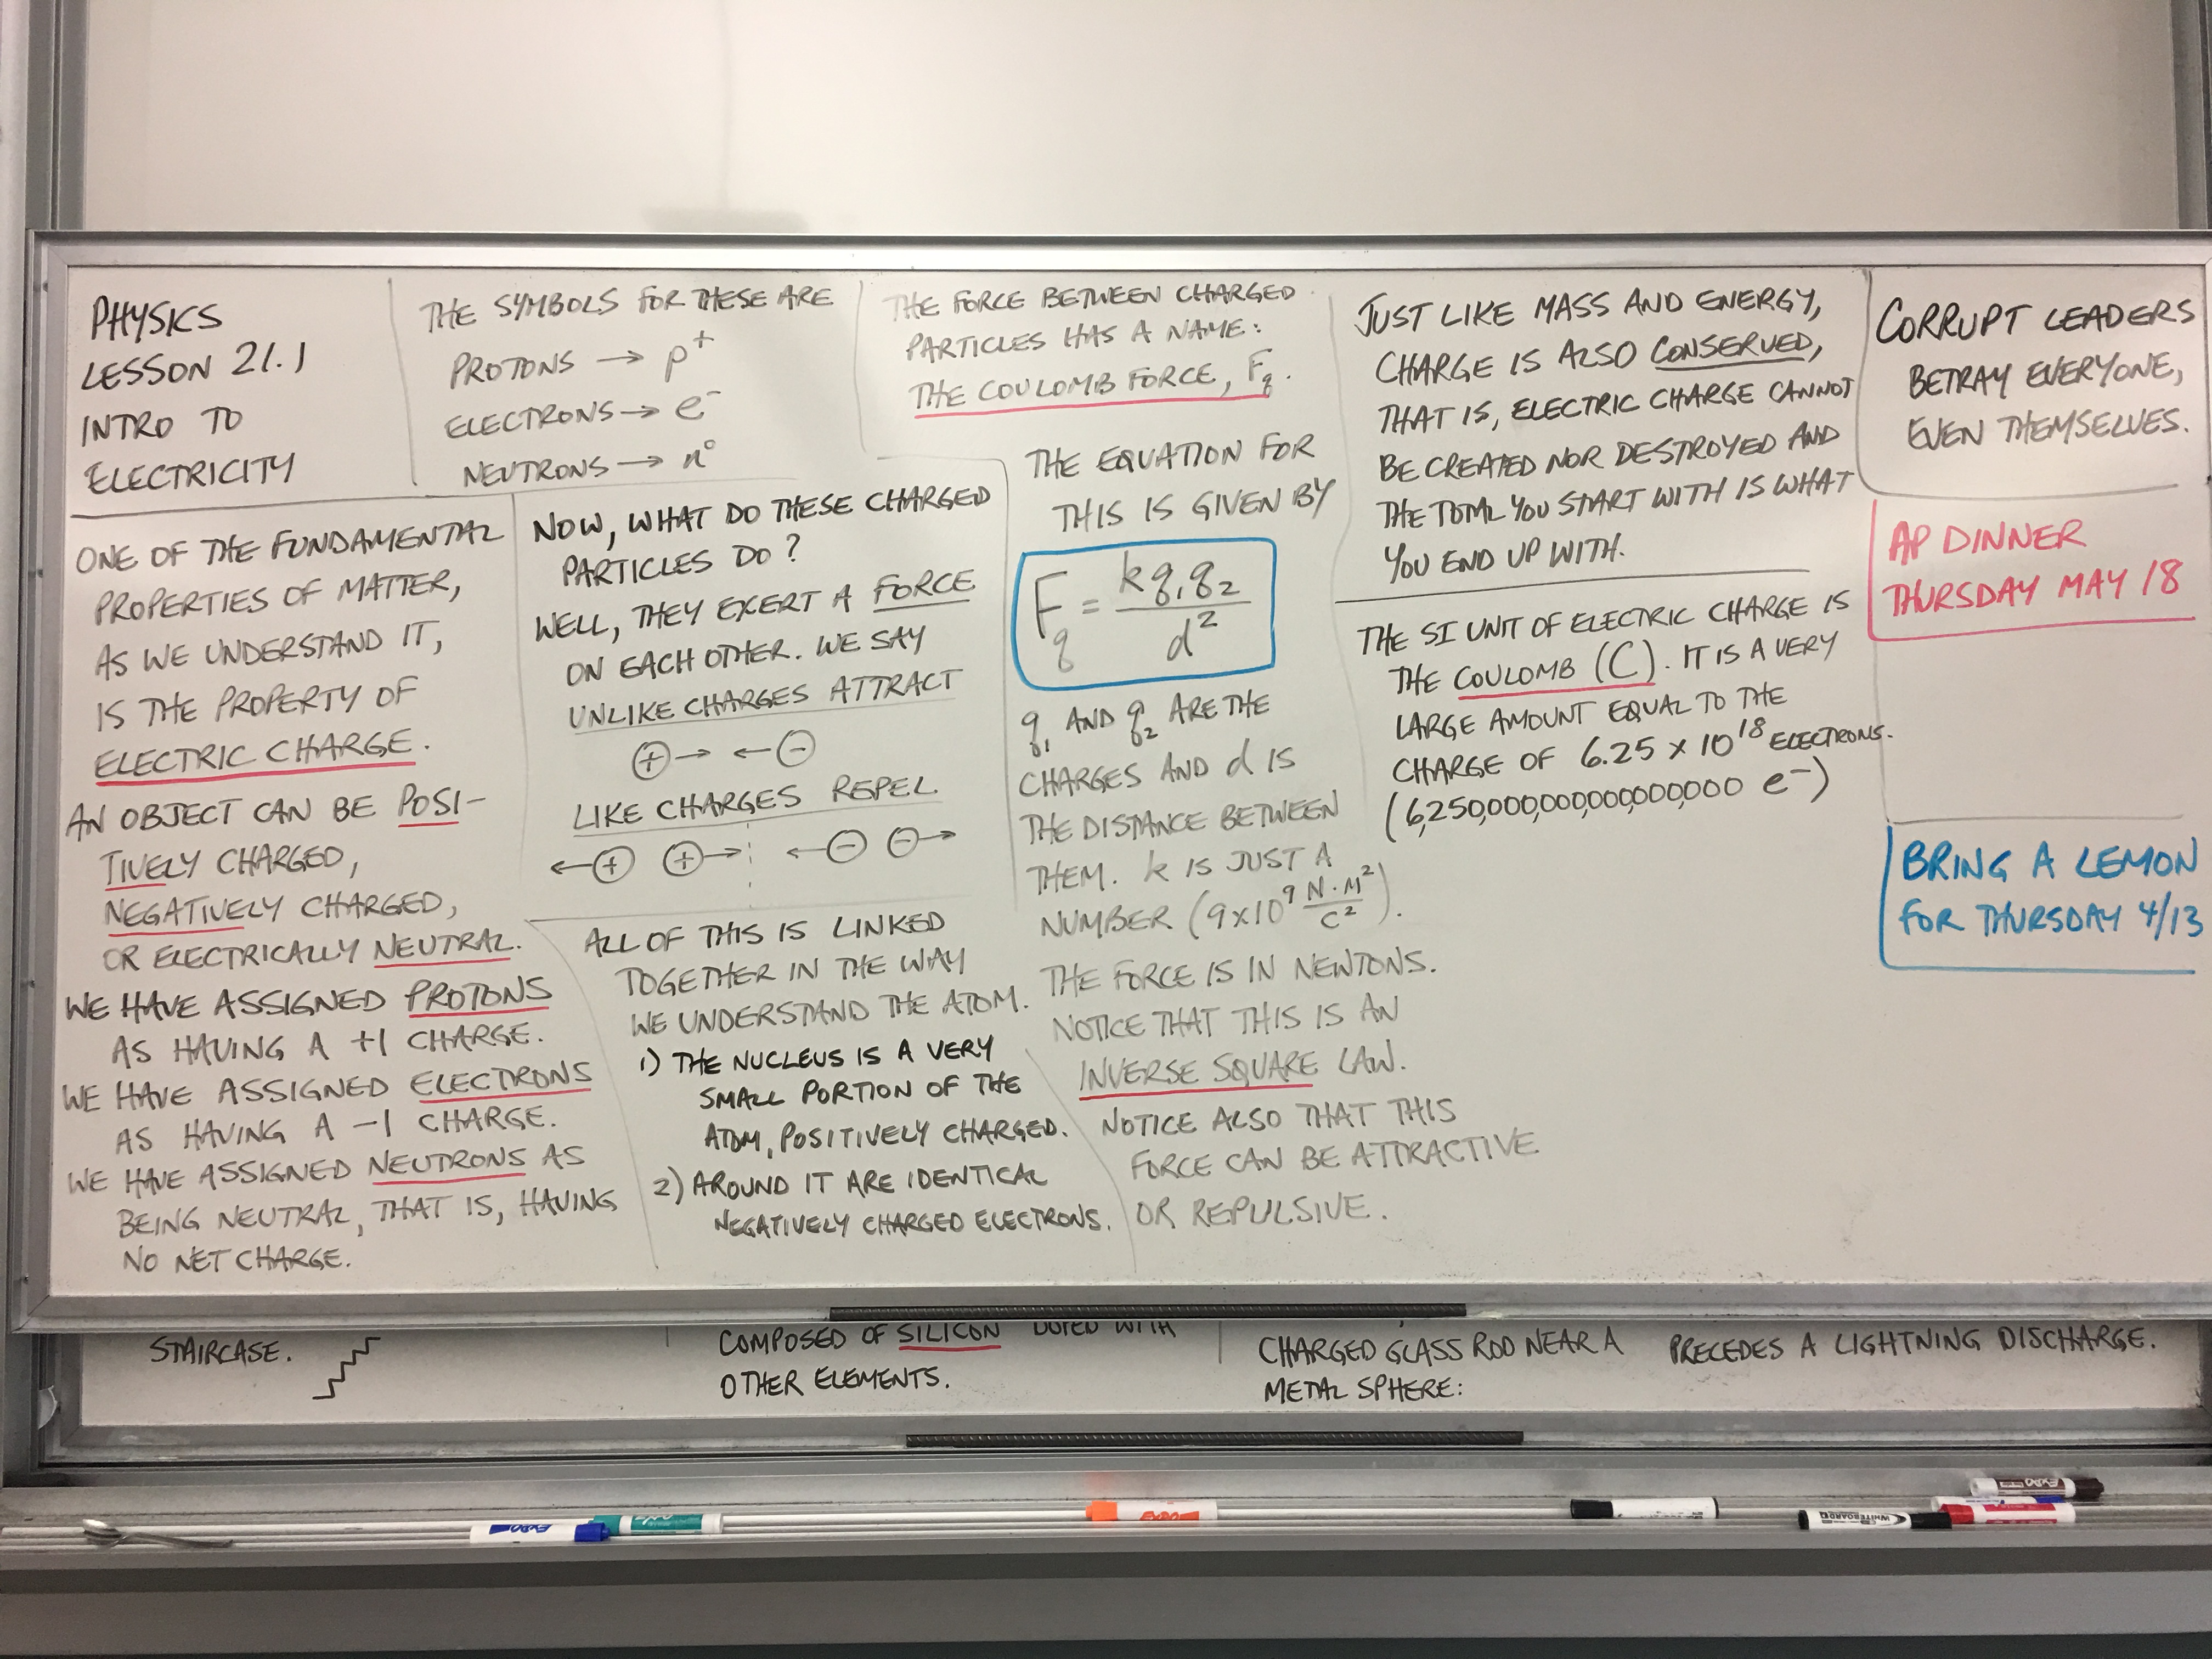 PHYSICS
LESSON 21.1
INTRO TO
ELECTRICITY
ONE OF THE FUNDAMENTAL
PROPERTIES OF MATTER,
AS WE UNDERSTAND IT,
IS THE PROPERTY OF
ELECTRIC CHARGE.
AN OBJECT CAN BE POSI-
TIVELY CHARGED,
NEGATIVELY CHARGED,
OR ELECTRICALLY NEUTRAL.
WE HAVE ASSIGNED PROTONS
AS HAVING A +1 CHARGE.
WE HAVE ASSIGNED ELECTRONS
AS HAVING A -1 CHARGE.
WE HAVE ASSIGNED NEUTRONS AS
BEING NEUTRAL, THAT IS, HAVING
NO NET CHARGE.
THE SYMBOLS FOR THESE ARE
PROTONS → p⁺
ELECTRONS → e⁻
NEUTRONS → n°
NOW, WHAT DO THESE CHARGED
PARTICLES DO?
WELL, THEY EXERT A FORCE
ON EACH OTHER. WE SAY
UNLIKE CHARGES ATTRACT
⊕→ ←⊖
LIKE CHARGES REPEL.
←⊕ ⊕→ ←⊖ ⊖→
ALL OF THIS IS LINKED
TOGETHER IN THE WAY
WE UNDERSTAND THE ATOM.
1) THE NUCLEUS IS A VERY
SMALL PORTION OF THE
ATOM, POSITIVELY CHARGED.
2) AROUND IT ARE IDENTICAL
NEGATIVELY CHARGED ELECTRONS.
THE FORCE BETWEEN CHARGED
PARTICLES HAS A NAME:
THE COULOMB FORCE, Fq.
THE EQUATION FOR
THIS IS GIVEN BY
Fq = kq₁q₂/d²
q₁ AND q₂ ARE THE
CHARGES AND d IS
THE DISTANCE BETWEEN
THEM. k IS JUST A
NUMBER (9x10⁹ N·M²/C²).
THE FORCE IS IN NEWTONS.
NOTICE THAT THIS IS AN
INVERSE SQUARE LAW.
NOTICE ALSO THAT THIS
FORCE CAN BE ATTRACTIVE
OR REPULSIVE.
JUST LIKE MASS AND ENERGY,
CHARGE IS ALSO CONSERVED,
THAT IS, ELECTRIC CHARGE CANNOT
BE CREATED NOR DESTROYED AND
THE TOTAL YOU START WITH IS WHAT
YOU END UP WITH.
THE SI UNIT OF ELECTRIC CHARGE IS
THE COULOMB (C). IT IS A VERY
LARGE AMOUNT EQUAL TO THE
CHARGE OF 6.25 x 10¹⁸ ELECTRONS.
(6,250,000,000,000,000,000 e⁻)
CORRUPT LEADERS
BETRAY EVERYONE,
EVEN THEMSELVES.
AP DINNER
THURSDAY MAY 18
BRING A LEMON
FOR THURSDAY 4/13
STAIRCASE.
COMPOSED OF SILICON DOPED WITH
OTHER ELEMENTS.
CHARGED GLASS ROD NEAR A
METAL SPHERE:
PRECEDES A LIGHTNING DISCHARGE.
EXPO
EXPO
EXPO
WHITEBOARD